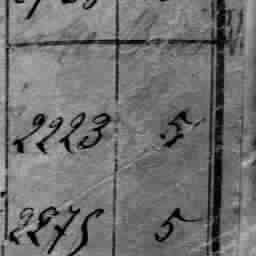 2223 5
2275 5